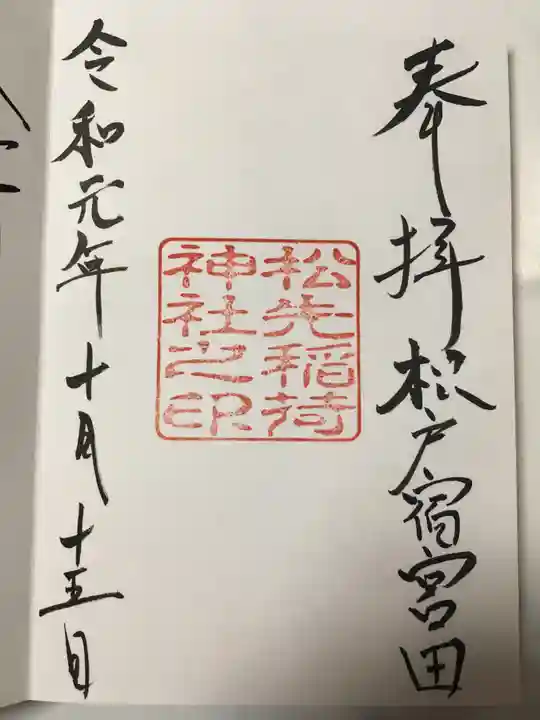 奉拝 松戸宿宮田
松先稲荷
神社之印
令和元年十月十五日